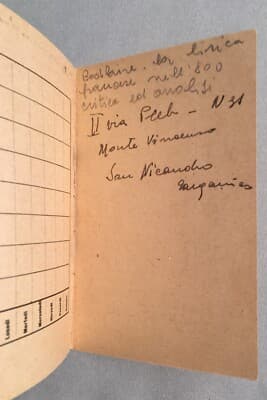 la lirica
francese nell'800
critica ed analisi
II via - N 31
Monte
San Nicandro
Garganico
Lunedì
Martedì
Mercoledì
Giovedì
Venerdì
Sabato